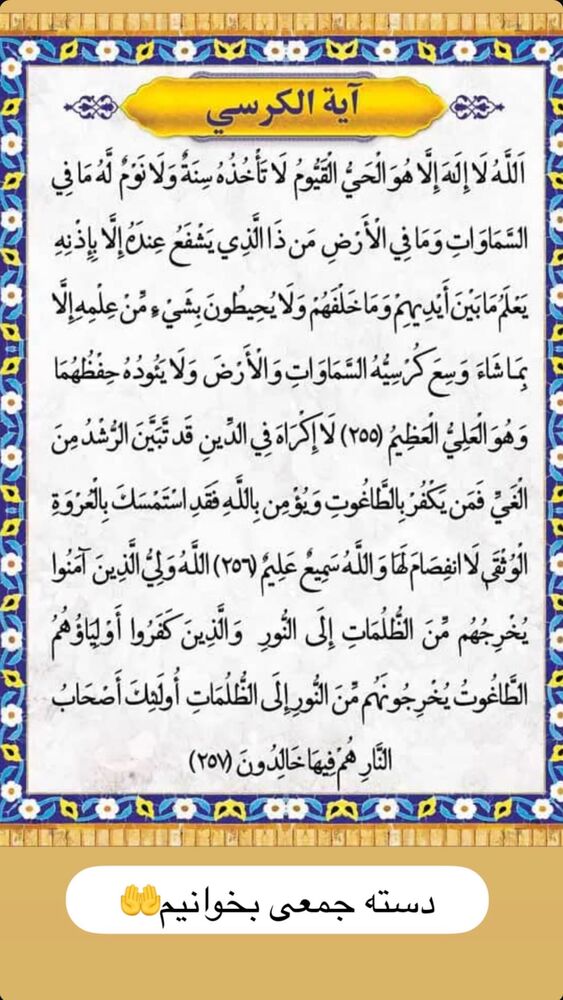 آية الكرسي
اَللَّهُ لَا إِلَهَ إِلَّا هُوَ الْحَيُّ الْقَيُّومُ لَا تَأْخُذُهُ سِنَةٌ وَلَا نَوْمٌ لَّهُ مَا فِي
السَّمَاوَاتِ وَمَا فِي الْأَرْضِ مَن ذَا الَّذِي يَشْفَعُ عِندَهُ إِلَّا بِإِذْنِهِ
يَعْلَمُ مَا بَيْنَ أَيْدِيهِمْ وَمَا خَلْفَهُمْ وَلَا يُحِيطُونَ بِشَيْءٍ مِّنْ عِلْمِهِ إِلَّا
بِمَا شَاءَ وَسِعَ كُرْسِيُّهُ السَّمَاوَاتِ وَالْأَرْضَ وَلَا يَئُودُهُ حِفْظُهُمَا
وَهُوَ الْعَلِيُّ الْعَظِيمُ (٢٥٥) لَا إِكْرَاهَ فِي الدِّينِ قَد تَّبَيَّنَ الرُّشْدُ مِنَ
الْغَيِّ فَمَن يَكْفُرْ بِالطَّاغُوتِ وَيُؤْمِن بِاللَّهِ فَقَدِ اسْتَمْسَكَ بِالْعُرْوَةِ
الْوُثْقَىَ لَا انفِصَامَ لَهَا وَاللَّهُ سَمِيعٌ عَلِيمٌ (٢٥٦) اللَّهُ وَلِيُّ الَّذِينَ آمَنُوا
يُخْرِجُهُم مِّنَ الظُّلُمَاتِ إِلَى النُّورِ وَالَّذِينَ كَفَرُوا أَوْلِيَاؤُهُمُ
الطَّاغُوتُ يُخْرِجُونَهُم مِّنَ النُّورِ إِلَى الظُّلُمَاتِ أُولَئِكَ أَصْحَابُ
النَّارِ هُمْ فِيهَا خَالِدُونَ (٢٥٧)
دسته جمعی بخوانیم🤲